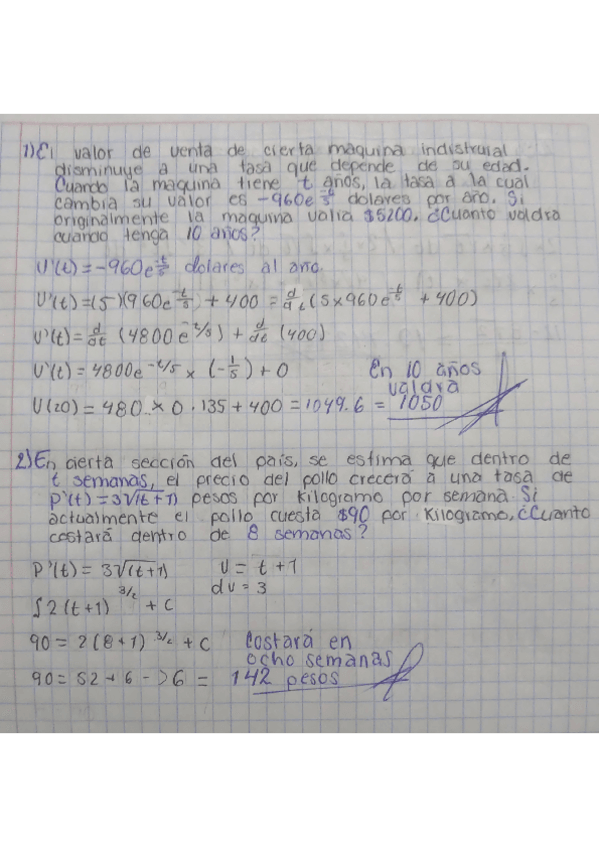 1) El valor de venta de cierta maquina indistruial
disminuye a una tasa que depende de su edad.
Cuando la maquina tiene t años, la tasa a la cual
cambia su valor es -960e^-t/5 dolares por año. Si
originalmente la maquina valia $5200. ¿Cuanto valdra
cuando tenga 10 años?
V'(t)=-960e^-t/5 dolares al año.
V'(t)=(5)(960e^-t/5)+400=d/dt(5x960e^-t/5 +400)
V'(t)=d/dt (4800e^-t/5)+d/dt (400)
V'(t)=4800e^-t/5 x(-1/5)+0
En 10 años
valdra
V(20)=480 x 0.135+400=1049.6= 1050
2) En cierta sección del país, se estima que dentro de
t semanas, el precio del pollo crecerá a una tasa de
P'(t)=3√(t+1) pesos por kilogramo por semana. Si
actualmente el pollo cuesta $90 por kilogramo, ¿Cuanto
costará dentro de 8 semanas?
P'(t)=3√(t+1) U=t+1
∫2(t+1)^3/2 +C du=3
90=2(8+1)^3/2+C Costará en
ocho semanas
90=52+6- = 142 pesos